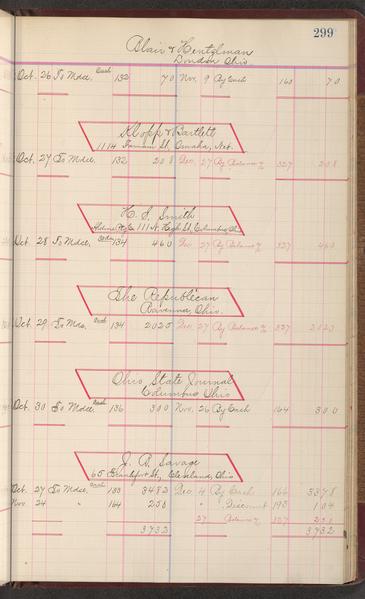 299
Blair & Hentzlman
London Ohio.
Oct. 26 To Mdse. Cash 132 70 Nov. 9 By Cash 160 70
Klopp & Bartlett
1114 Farnam St. Omaha, Neb.
Oct. 27 To Mdse. 132 208 Dec. 27 By Balance 327 208
H. S. Smith
111 N. High St, Columbus O.
Oct. 28 To Mdse. 134 460 Dec 27 By Balance 327 460
The Republican
Ravenna, Ohio.
Oct. 29 To Mdse. Cash 134 2020 Dec. 27 By Balance 327 2020
Ohio State Journal
Columbus Ohio
Oct. 30 To Mdse. Cash 136 300 Nov. 26 By Cash 164 300
J. B. Savage
65 Frankfort St., Cleveland, Ohio
Oct. 27 To Mdse. Cash 133 3482 Dec 4 By Cash 166 3378
Nov. 24 " 164 250 " " Discount 193 104
27 Balance 327 250
3732 3732